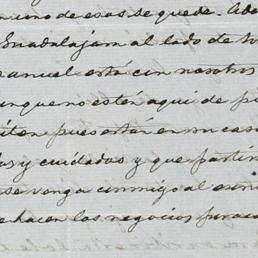 uno de esos se quede. Ado
Guadalajara al lado de tu
anuel está con nosotros
unque no estén aquí de pi
iten pues están en su casa
os y cuidados y que parti
se venga conmigo al
e hacen los negocios para